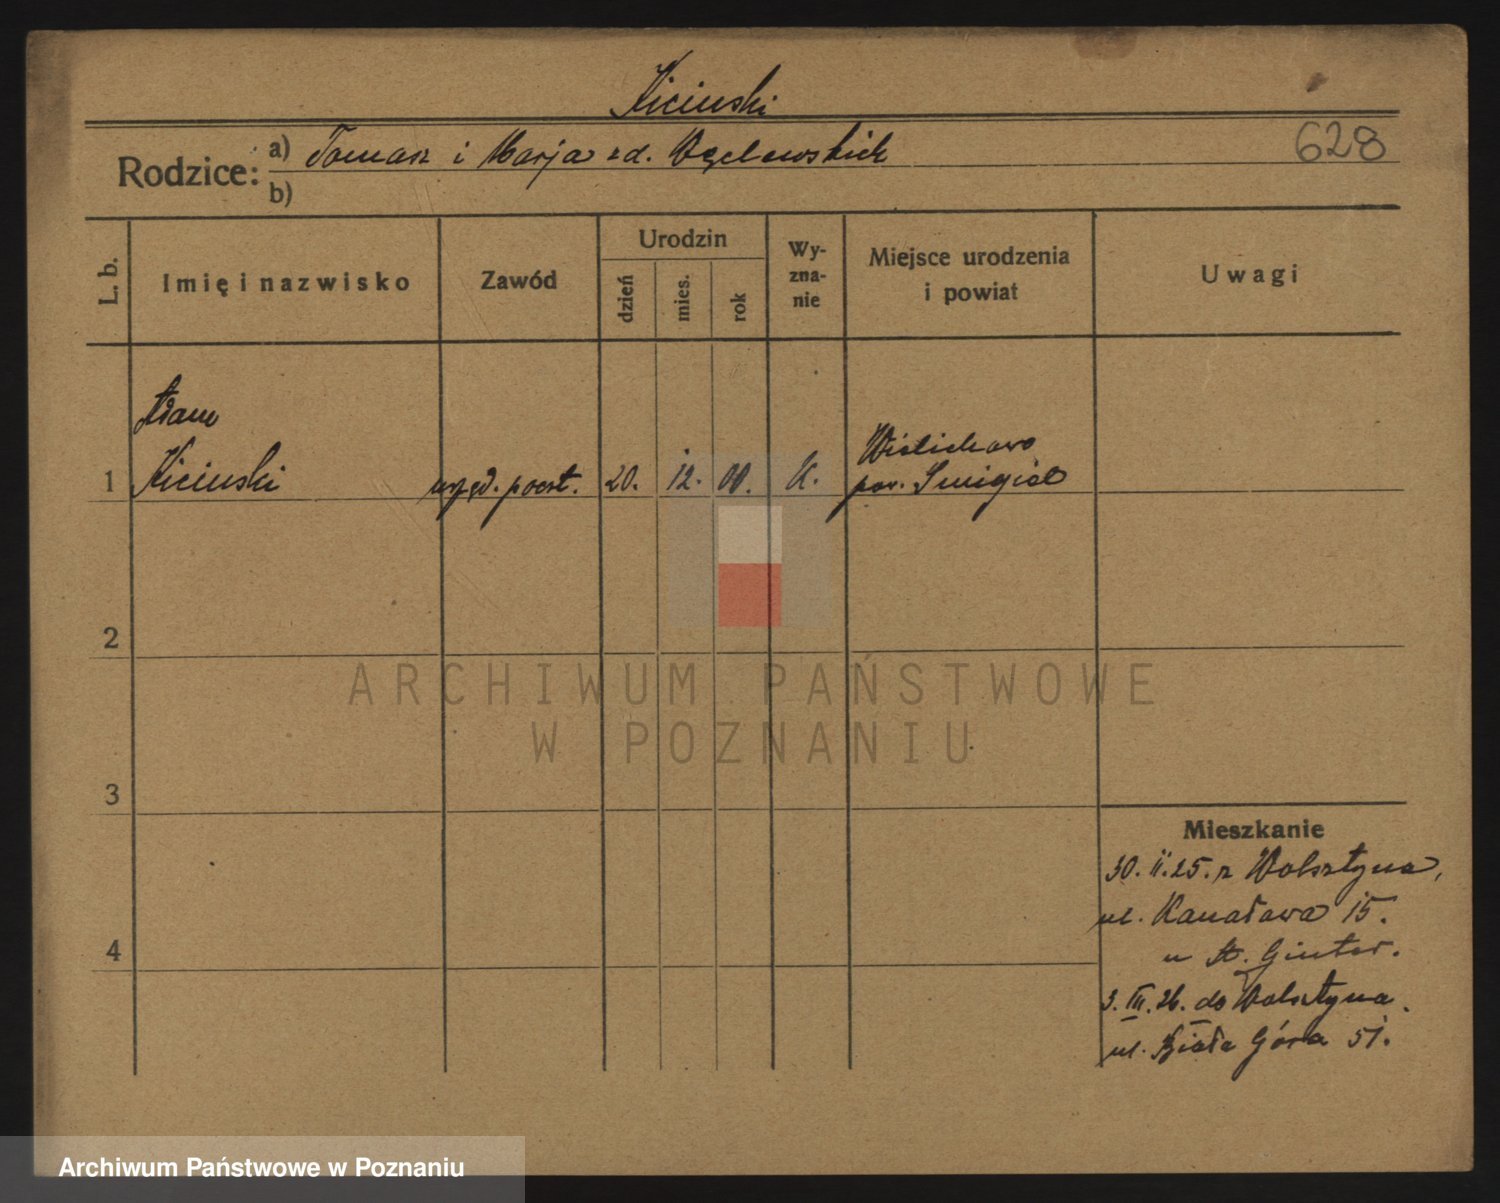 Kiciński
628
Rodzice: a) Tomasz i Marja zd. Węclewskich
b)
L. b.
Imię i nazwisko
Zawód
Urodzin
dzień
mies.
rok
Wy-
zna-
nie
Miejsce urodzenia
i powiat
Uwagi
Adam
1 Kiciński urzęd. poczt. 20. 12. 00. K. Wielichowo
pow. Śmigiel
2
3
4
ARCHIWUM PAŃSTWOWE
W POZNANIU
Mieszkanie
30. II. 25. z Wolsztyna,
ul. Kanałowa 15.
u A. Ginter.
3. III. 26. do Wolsztyna.
ul. Biała Góra 51.
Archiwum Państwowe w Poznaniu